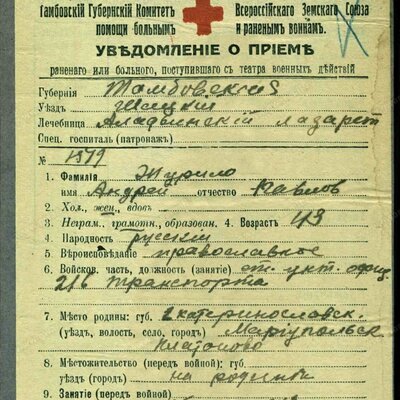 Тамбовскій Губернскій Комитетъ Всероссійскаго Земскаго Союза
помощи больнымъ и раненымъ воинамъ.
УВѢДОМЛЕНІЕ О ПРІЕМѢ
раненаго или больного, поступившаго съ театра военныхъ дѣйствій
Губернія Тамбовская
Уѣздъ Шацкій
Лечебница лазарет
Спец. госпиталь (патронажъ)
№ 1979
1. Фамилія Журило
имя Андрей отчество Павлов
2. Хол., жен., вдовъ
3. Неграм., грамотн., образован. 4. Возрастъ 43
4. Народность русскій
5. Вѣроисповѣданіе православное
6. Войсков. часть, должность (занятіе)
216 транспорта
7. Мѣсто родины: губ. Екатеринославск.
(уѣздъ, волость, село, городъ) Маріупольск
8. Мѣстожительство (передъ войной): губ.
уѣздъ (городъ) на родинѣ
9. Занятіе (передъ войной)